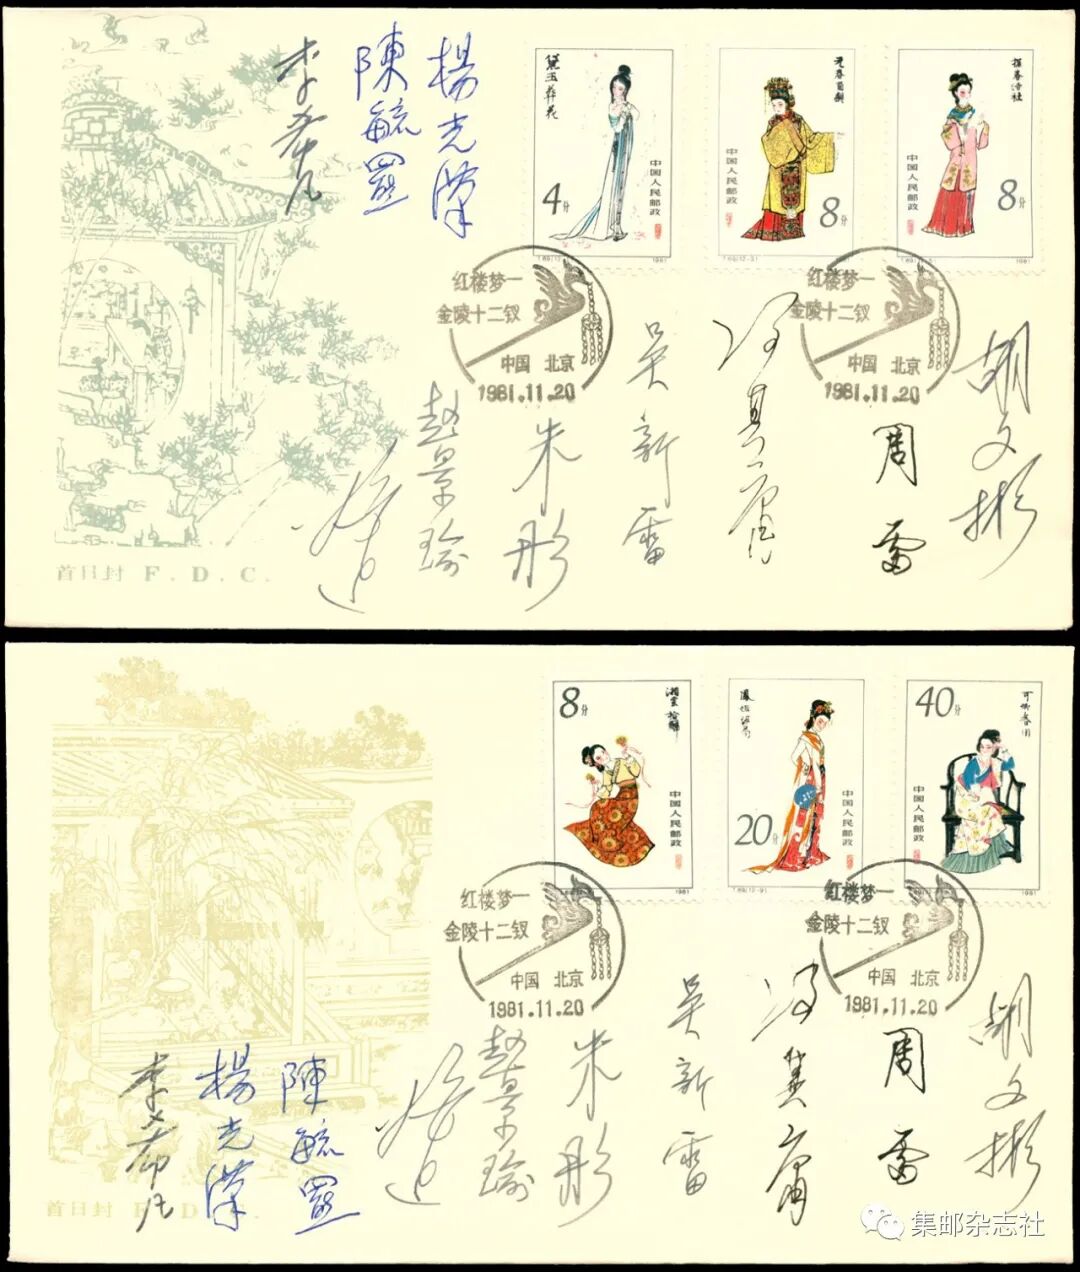 李希凡
陳毓羆
楊光漢
黛玉葬花
4分
中国人民邮政
1981
元春省親
中国人民邮政
8分
T.69.(12-3)
1981
探春结社
中国人民邮政
8分
1981
红楼梦—
金陵十二钗
中国 北京
1981.11.20
红楼梦—
金陵十二钗
中国 北京
1981.11.20
赵景瑜
朱彤
吴新雷
冯其庸
周雷
胡文彬
首日封 F.D.C.
8分
湘雲拾麟
中国人民邮政
1981
鳳姐设局
20分
中国人民邮政
T.69.(12-9)
40分
可卿春困
中国人民邮政
1981
红楼梦—
金陵十二钗
中国 北京
1981.11.20
红楼梦—
金陵十二钗
中国 北京
1981.11.20
李希凡
楊光漢
陳毓羆
赵景瑜
朱彤
吴新雷
冯其庸
周雷
胡文彬
首日封 F.D.C.
集邮杂志社